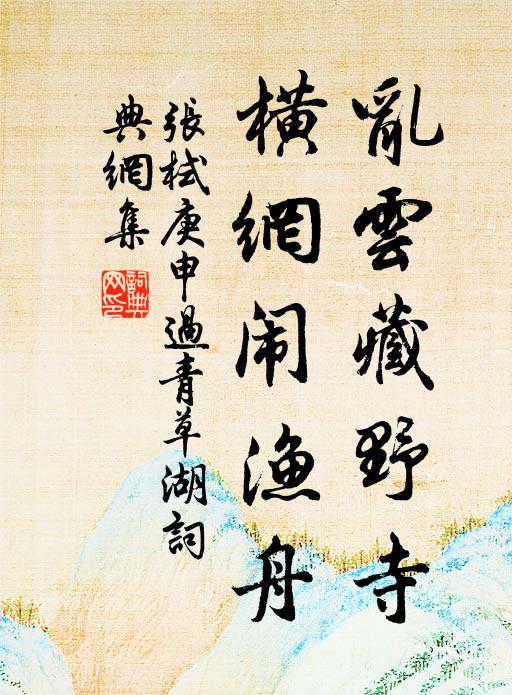 亂雲藏野寺
橫網闹漁舟
張栻庚申過青草湖詞
典網集
詞典网印